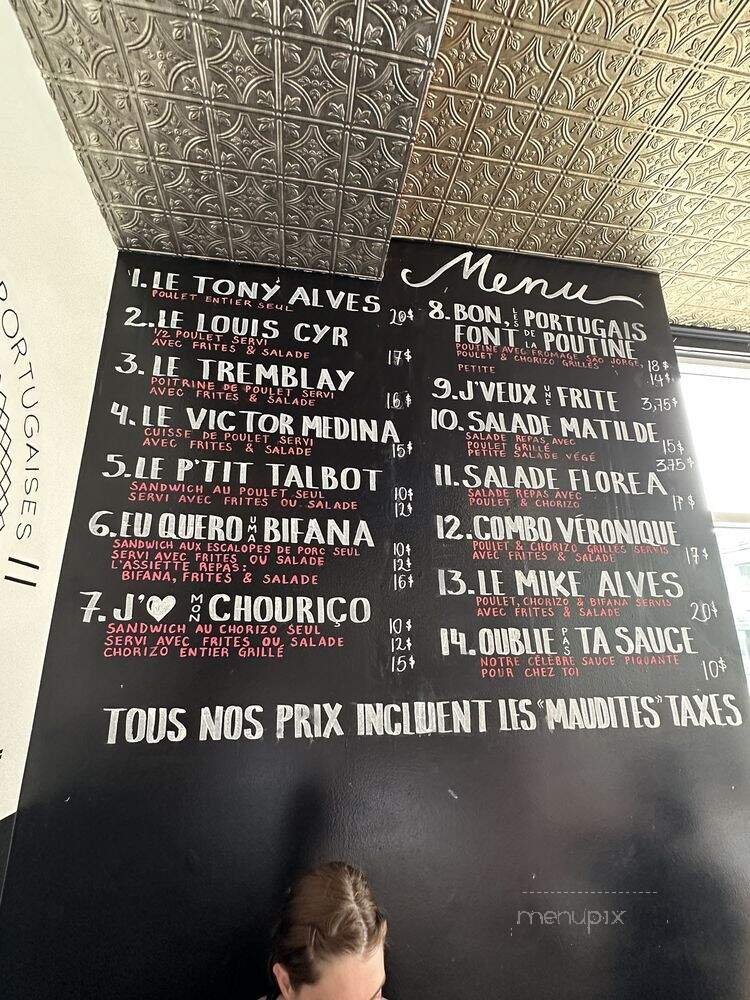 PORTUGAISES
Menu
1. LE TONY ALVES
POULET ENTIER SEUL
20$
2. LE LOUIS CYR
1/2 POULET SERVI
AVEC FRITES & SALADE
17$
3. LE TREMBLAY
POITRINE DE POULET SERVI
AVEC FRITES & SALADE
16$
4. LE VICTOR MEDINA
CUISSE DE POULET SERVI
AVEC FRITES & SALADE
15$
5. LE P'TIT TALBOT
SANDWICH AU POULET SEUL 10$
SERVI AVEC FRITES OU SALADE 12$
6. EU QUERO UMA BIFANA
SANDWICH AUX ESCALOPES DE PORC SEUL 10$
SERVI AVEC FRITES OU SALADE 12$
L'ASSIETTE REPAS:
BIFANA, FRITES & SALADE 16$
7. J'♥ MON CHOURIÇO
SANDWICH AU CHORIZO SEUL 10$
SERVI AVEC FRITES OU SALADE 12$
CHORIZO ENTIER GRILLÉ 15$
8. BON, LES PORTUGAIS
FONT DE LA POUTINE
POUTINE AVEC FROMAGE SAO JORGE,
POULET & CHORIZO GRILLÉS 18$
PETITE 14$
9. J'VEUX UNE FRITE 3,75$
10. SALADE MATILDE
SALADE REPAS AVEC
POULET GRILLÉ 15$
PETITE SALADE VÉGÉ 3.75$
11. SALADE FLOREA
SALADE REPAS AVEC
POULET & CHORIZO
12. COMBO VÉRONIQUE
POULET & CHORIZO GRILLÉS SERVIS
AVEC FRITES & SALADE 17$
13. LE MIKE ALVES
POULET, CHORIZO & BIFANA SERVIS
AVEC FRITES & SALADE 20$
14. OUBLIE PAS TA SAUCE
NOTRE CÉLÈBRE SAUCE PIQUANTE
POUR CHEZ TOI 10$
TOUS NOS PRIX INCLUENT LES "MAUDITES" TAXES
menupix